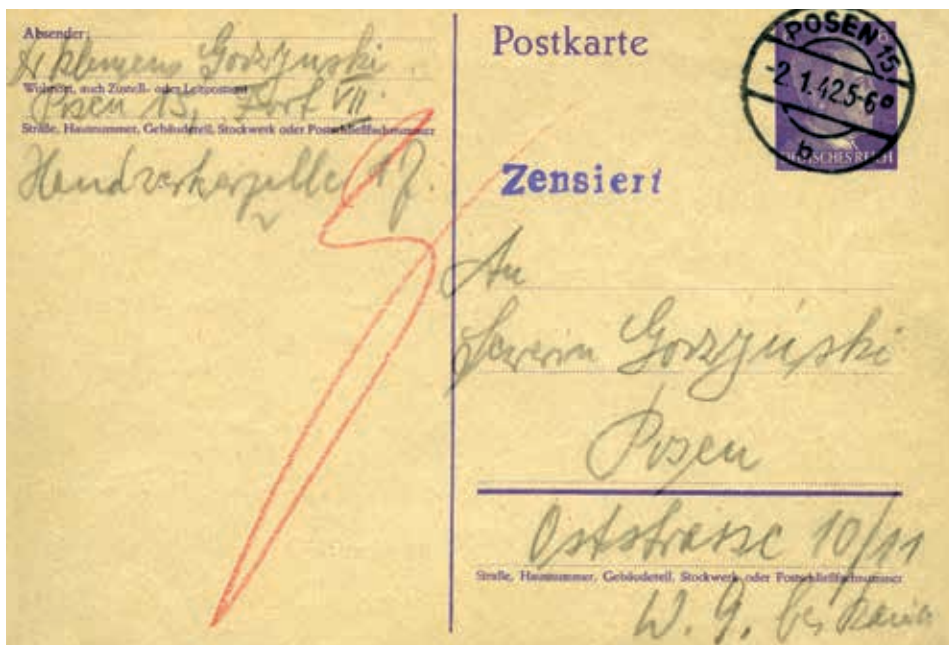 Absender:
Klemens Gorzynski
Wohnort, auch Zustell- oder Leitpostamt
Posen 15, Fort VII
Straße, Hausnummer, Gebäudeteil, Stockwerk oder Postschließfachnummer
17.
Postkarte
POSEN 15
-2.1.42.5-6
b
DEUTSCHES REICH
Zensiert
An
Gorzyński
Posen
Oststrasse 10/11
Straße, Hausnummer, Gebäudeteil, Stockwerk oder Postschließfachnummer
W. 9. bei